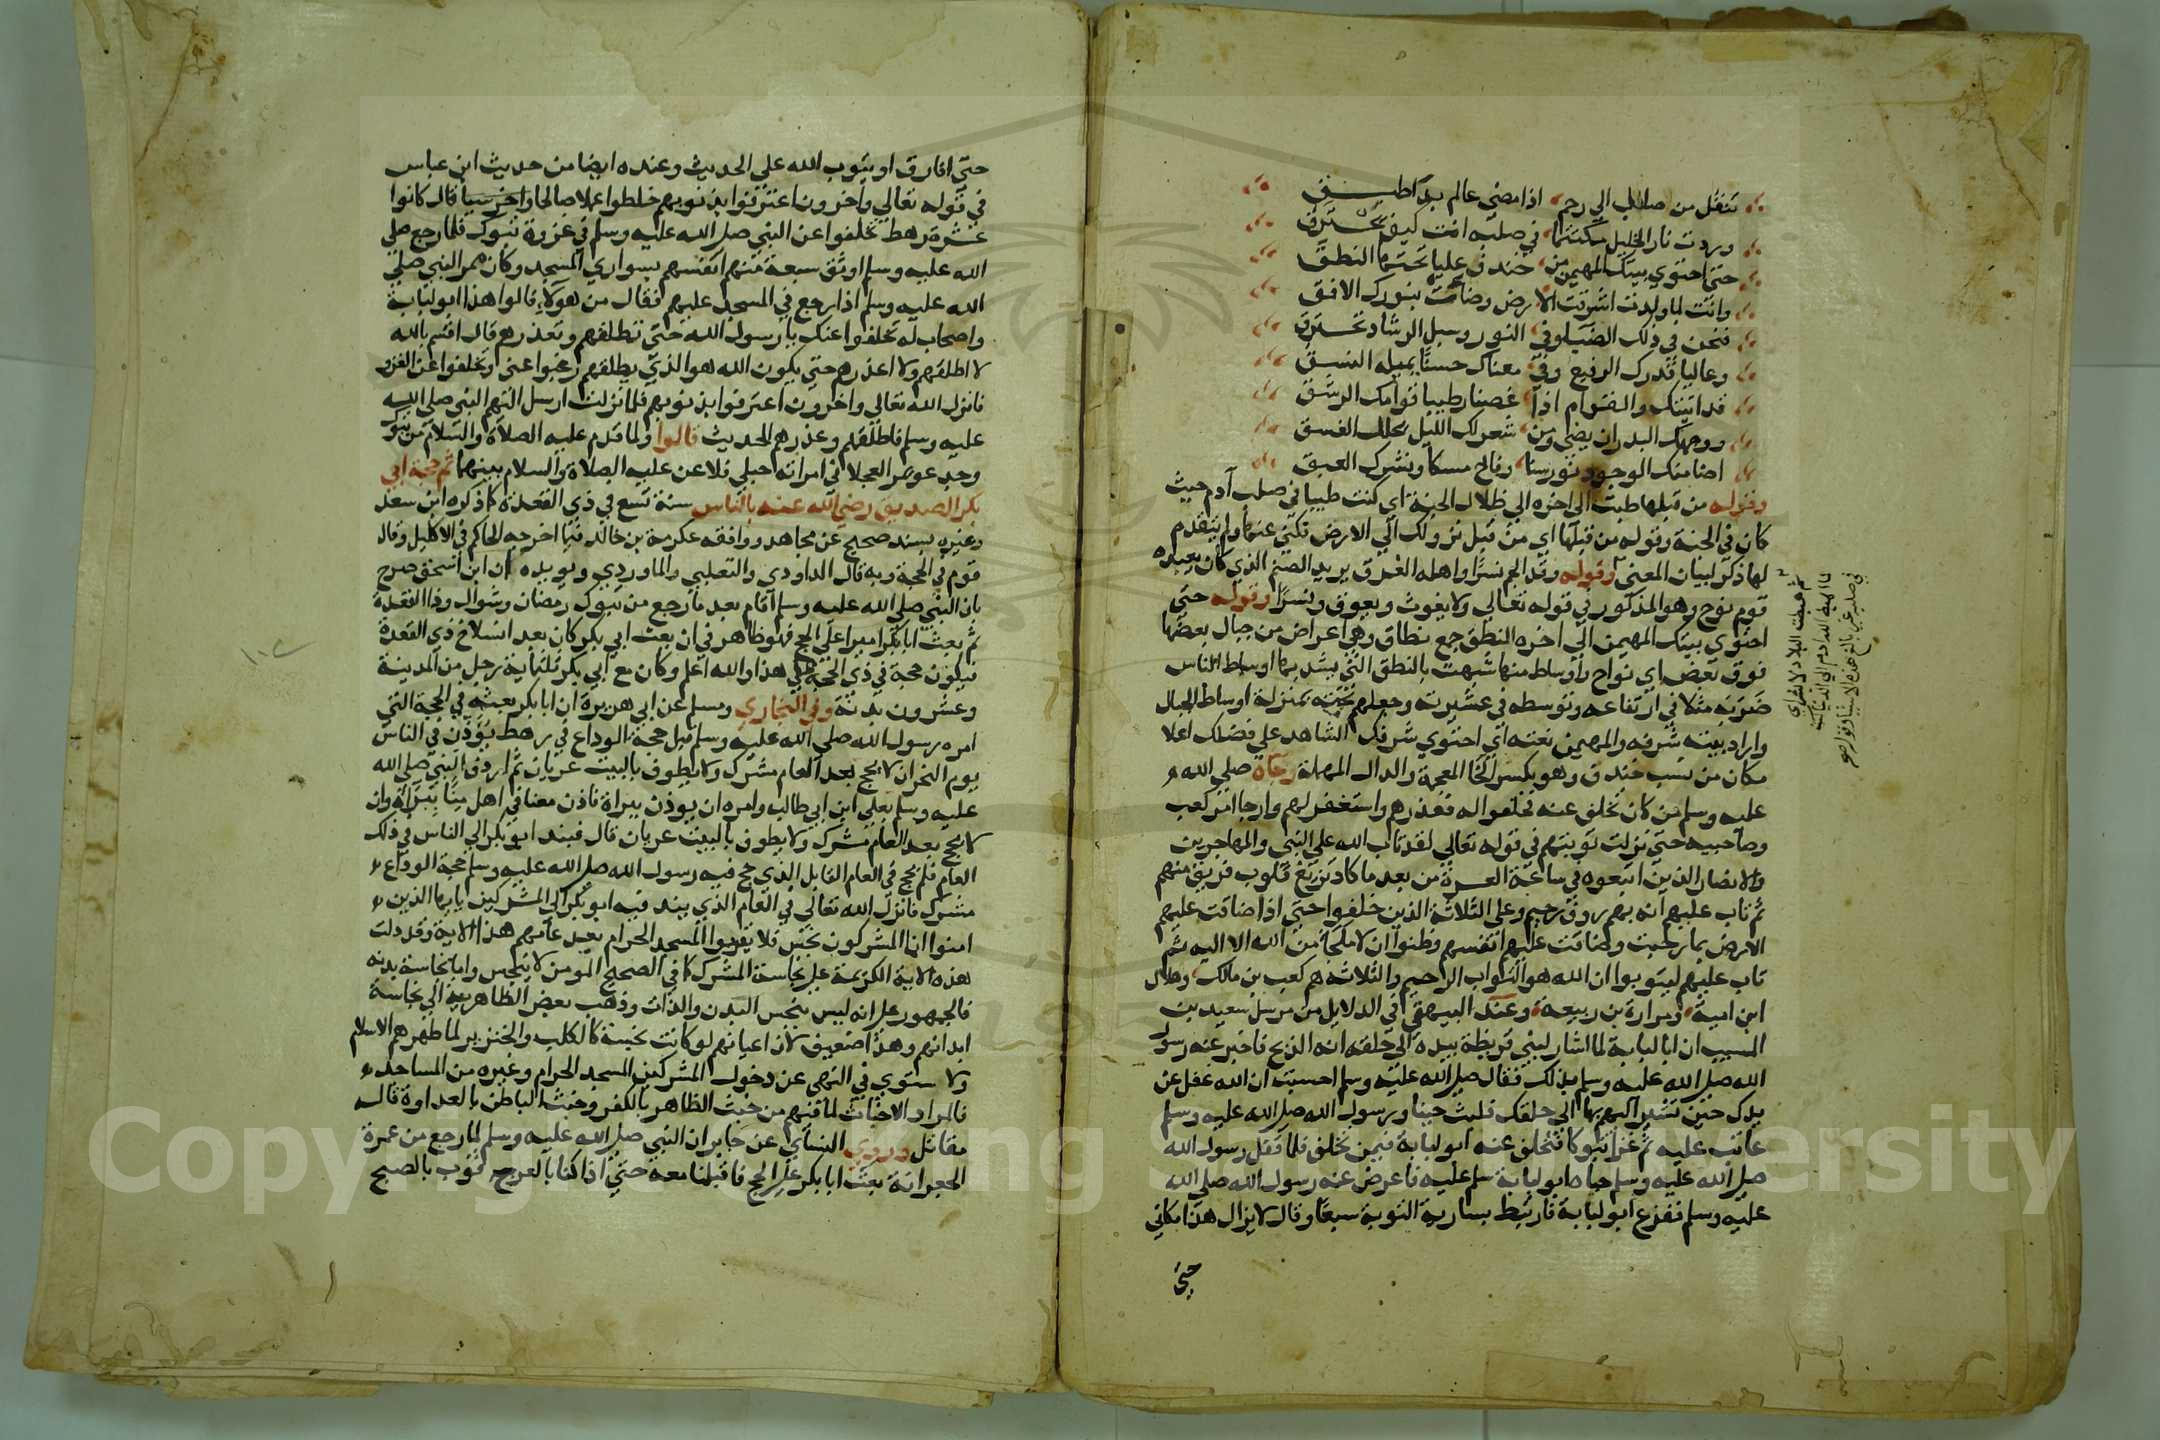 تنقل من صالب الي رحم اذا مضي عالم بدا طبق
وردت نار الخليل مكتتما في صلبه انت كيف يحترق
حتي احتوي بيتك المهيمن من خندف عليا تحتها النطق
وانت لما ولدت اشرقت الارض وضات بنورك الافق
فنحن في ذلك الضيا وفي النور وسبل الرشاد نخترق
اضا منك الوجود نور سنا وفاح مسكا ونشرك العبق
وقوله من قبلها طبت الي اخره الي ظلال الجنة اي كنت طيبا في صلب آدم حيث
كان في الجنة وقوله من قبلها اي من قبل نزولك الي الارض فكني عنها ولم يتقدم
لها ذكر لبيان المعني وقوله وقد الجم نسرا واهله الغرق يريد الصنم الذي كان يعبده
قوم نوح وهو المذكور في قوله تعالي ولا يغوث ويعوق ونسرا وقوله حتي
احتوي بيتك المهيمن الي اخره النطق جمع نطاق وهي اعراض من جبال بعضها
فوق بعض اي نواح واوساط منها شبهت بالنطق التي يشد بها اوساط الناس
ضربه مثلا في ارتفاعه وتوسطه في عشيرته وجعلهم تحته بمنزلة اوساط الجبال
واراد ببيته شرفه والمهيمن نعته اي احتوي شرفك الشاهد علي فضلك اعلا
مكان من نسب خندف وهو بكسر الخا المعجمة والدال المهملة وجاه صلي الله
عليه وسلم من كان تخلف عنه فحلفوا له فعذرهم واستغفر لهم وارجا امر كعب
وصاحبيه حتي نزلت توبتهم في قوله تعالي لقد تاب الله علي النبي والمهاجرين
والانصار الذين اتبعوه في ساعة العسرة من بعد ما كاد تزيغ قلوب فريق منهم
ثم تاب عليهم انه بهم روف رحيم وعلي الثلاثة الذين خلفوا حتي اذا ضاقت عليهم
الارض بما رحبت وضاقت عليهم انفسهم وظنوا ان لا ملجا من الله الا اليه ثم
تاب عليهم ليتوبوا ان الله هو التواب الرحيم والثلاثة هم كعب بن مالك وهلال
ابن امية ومرارة بن ربيعة وعند البيهقي في الدلايل من مرسل سعيد بن
المسيب ان ابا لبابة لما اشار لبني قريظة بيده الي حلقه انه الذبح فاخبر عنه رسول
الله صلي الله عليه وسلم بذلك فقال صلي الله عليه وسلم احسبت ان الله غفل عن
يدك حين تشير اليهم بها الي حلقك فلبث حينا ورسول الله صلي الله عليه وسلم
عاتب عليه ثم غزا تبوكا فتخلف عنه ابو لبابة فيمن تخلف فلما قفل رسول الله
صلي الله عليه وسلم جاه ابو لبابة سلم عليه فاعرض عنه رسول الله صلي الله
عليه وسلم ففزع ابو لبابة فارتبط بسارية التوبة سبعا وقال لا يزال هذا مكاني
حتي
حتي افارق او يتوب الله علي الحديث وعنده ايضا من حديث ابن عباس
في قوله تعالي واخرون اعترفوا بذنوبهم خلطوا عملا صالحا واخر سيا قال كانوا
عشرة رهط تخلفوا عن النبي صلي الله عليه وسلم في غزوة تبوك فلما رجع صلي
الله عليه وسلم اوثق سبعة منهم انفسهم بسواري المسجد وكان ممر النبي صلي
الله عليه وسلم اذا رجع في المسجد عليهم فقال من هولاء قالوا هذا ابو لبابة
واصحاب له تخلفوا عنك يا رسول الله حتي تطلقهم وتعذرهم قال اقسم بالله
لا اطلقهم ولا اعذرهم حتي يكون الله هو الذي يطلقهم رغبوا عني وتخلفوا عن الغزو
فانزل الله تعالي واخرون اعترفوا بذنوبهم فلما نزلت ارسل اليهم النبي صلي الله
عليه وسلم فاطلقهم وعذرهم الحديث قالوا ولما قدم عليه الصلاة والسلام من تبوك
وجد عويمر العجلاني امراته حبلي فلاعن عليه الصلاة والسلام بينهما ثم حجة ابي
بكر الصديق رضي الله عنه بالناس سنة تسع في ذي القعدة كما ذكره ابن سعد
وغيره بسند صحيح عن مجاهد ووافقه عكرمة بن خالد فيما اخرجه الحاكم في الاكليل وقال
قوم في الحجة وبه قال الداودي والثعلبي والماوردي ويويده ان ابن اسحق صرح
بان النبي صلي الله عليه وسلم اقام بعد ما رجع من تبوك رمضان وشوال وذا القعدة
ثم بعث ابا بكر اميرا علي الحج فهو ظاهر في ان بعث ابي بكر كان بعد انسلاخ ذي القعدة
فيكون حجه في ذي الحجة علي هذا والله اعلم وكان مع ابي بكر ثلثماية رجل من المدينة
وعشرون بدنة وفي البخاري ومسلم عن ابي هريرة ان ابا بكر بعثه في الحجة التي
امره رسول الله صلي الله عليه وسلم قبل حجة الوداع في رهط يوذن في الناس
يوم النحر ان لا يحج بعد العام مشرك ولا يطوف بالبيت عريان ثم اردف النبي صلي الله
عليه وسلم بعلي ابن ابي طالب وامره ان يوذن ببراة فاذن معنا في اهل منا ببراة وان
لا يحج بعد العام مشرك ولا يطوف بالبيت عريان قال فنبذ ابو بكر الي الناس في ذلك
العام فلم يحج في العام القابل الذي حج فيه رسول الله صلي الله عليه وسلم حجة الوداع
مشرك فانزل الله تعالي في العام الذي نبذ فيه ابو بكر الي المشركين يا ايها الذين
امنوا انما المشركون نجس فلا يقربوا المسجد الحرام بعد عامهم هذا الاية وقد دلت
هذه الاية الكريمة علي نجاسة المشرك كما في الصحيح المومن لا ينجس واما نجاسة بدنه
فالجمهور علي انه ليس بنجس البدن والذات وذهب بعض الظاهرية الي نجاسة
ابدانهم وهذا ضعيف لان اعيانهم لو كانت نجسة كالكلب والخنزير لما طهرهم الاسلام
ولا ستوي في النهي عن دخول المشركين المسجد الحرام وغيره من المساجد
فالمراد الاخباث لما فيهم من خبث الظاهر بالكفر وخبث الباطن بالعداوة قاله
مقاتل وروي النساي عن جابر ان النبي صلي الله عليه وسلم لما رجع من عمرة
الجعرانة بعث ابا بكر علي الحج فاقبلنا معه حتي اذا كنا بالعرج فثوب بالصبح
Copyright King Saud University